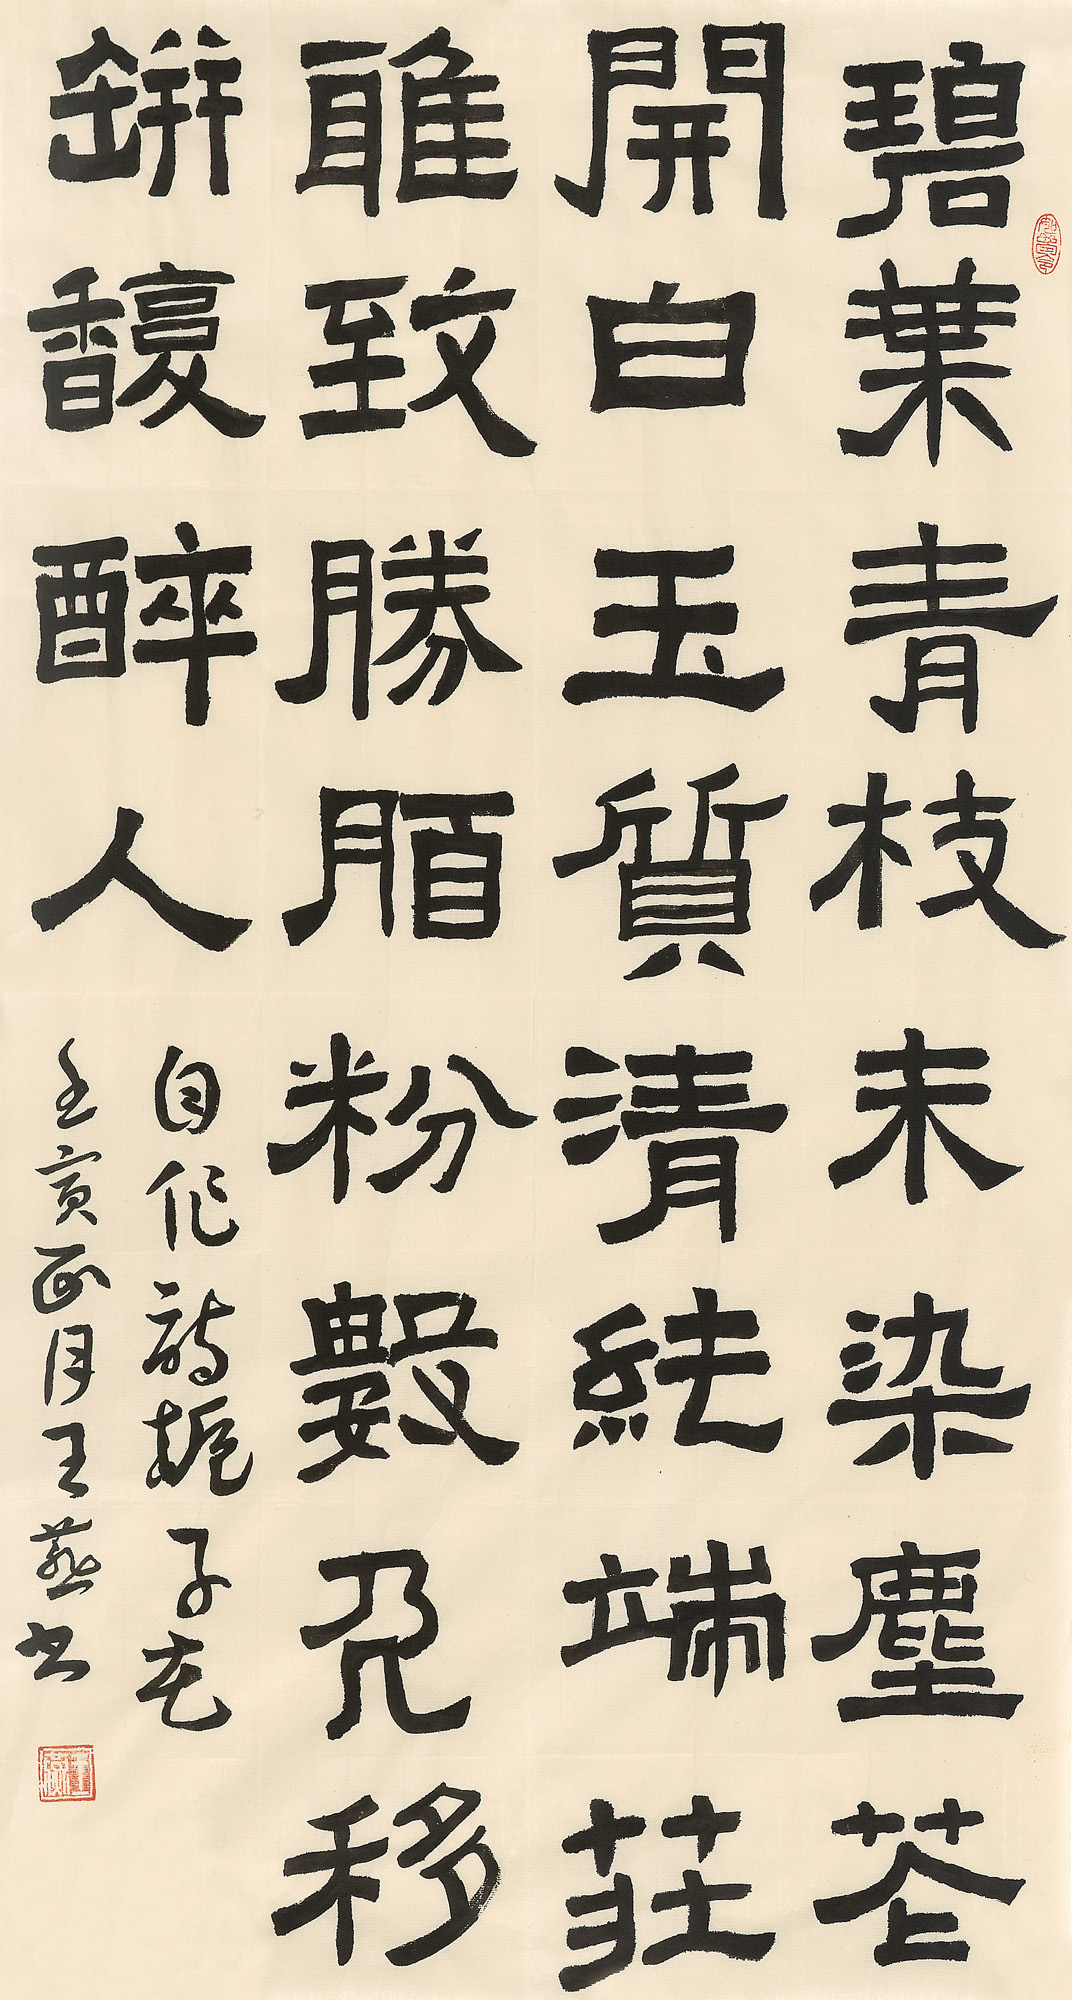 碧葉青枝未染塵花
開白玉質清純端莊
雅致勝脂粉數朵移
缾馥醉人
自作詩梔子花
壬寅正月王燕书